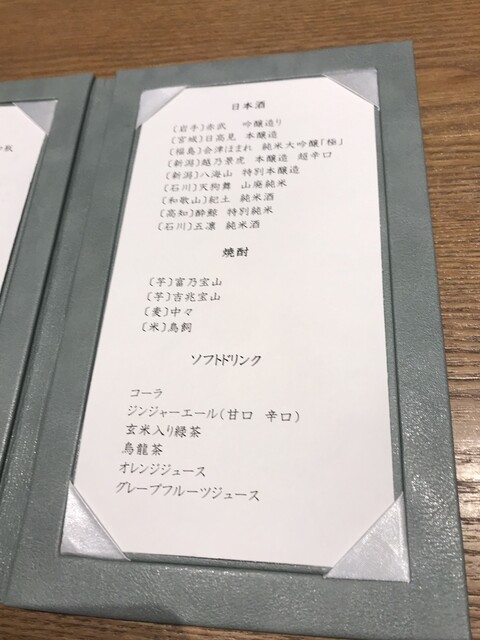 日本酒
〔岩手〕赤武 吟醸造り
〔宮城〕日高見 本醸造
〔福島〕会津ほまれ 純米大吟醸「極」
〔新潟〕越乃景虎 本醸造 超辛口
〔新潟〕八海山 特別本醸造
〔石川〕天狗舞 山廃純米
〔和歌山〕紀土 純米酒
〔高知〕酔鯨 特別純米
〔石川〕五凛 純米酒
焼酎
〔芋〕富乃宝山
〔芋〕吉兆宝山
〔麦〕中々
〔米〕鳥飼
ソフトドリンク
コーラ
ジンジャーエール(甘口 辛口)
玄米入り緑茶
烏龍茶
オレンジジュース
グレープフルーツジュース